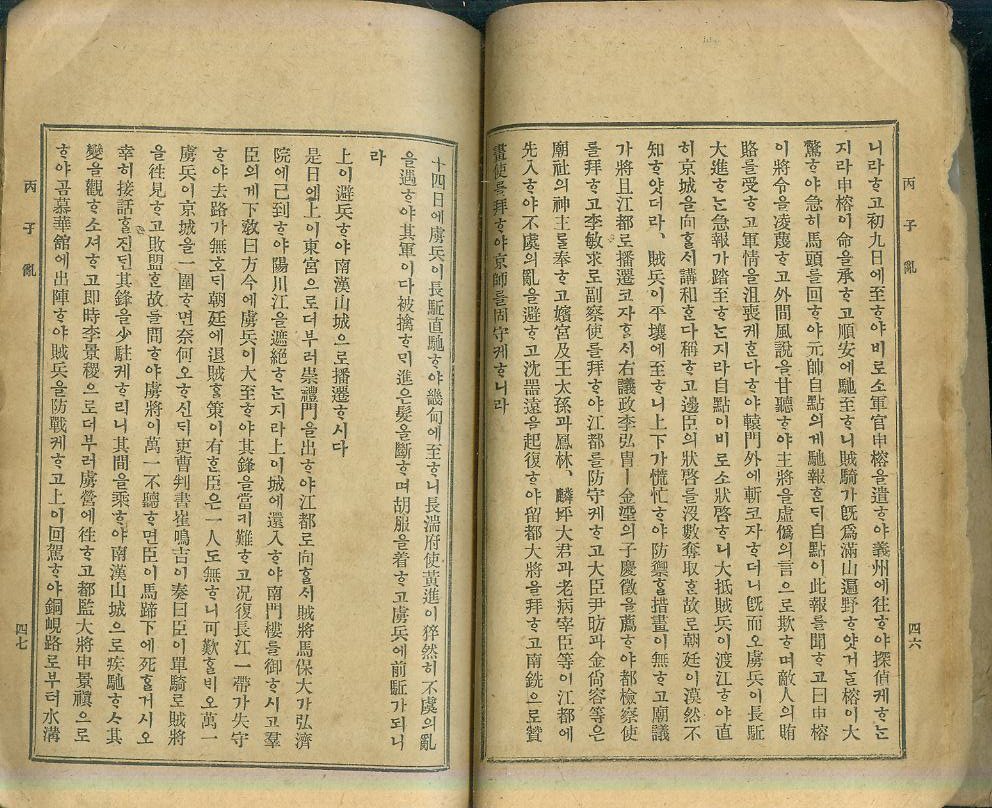 丙子亂
四六
니라ᄒᆞ고初九日에至ᄒᆞ야비로소軍官申榕을遣ᄒᆞ야義州에往ᄒᆞ야探偵케ᄒᆞᄂᆞᆫ
지라申榕이命을承ᄒᆞ고順安에馳至ᄒᆞ니賊騎가旣爲滿山遍野ᄒᆞ얏거ᄂᆞᆯ榕이大
驚ᄒᆞ야急히馬頭를回ᄒᆞ야元帥自點의게馳報ᄒᆞᆫᄃᆡ自點이此報를聞ᄒᆞ고曰申榕
이將令을凌蔑ᄒᆞ고外間風說을甘聽ᄒᆞ야主將을虛僞의言으로欺ᄒᆞ며敵人의賄
賂를受ᄒᆞ고軍情을沮喪케ᄒᆞᆫ다ᄒᆞ야轅門外에斬코자ᄒᆞ더니旣而오虜兵이長駈
大進ᄒᆞᄂᆞᆫ急報가踏至ᄒᆞᄂᆞᆫ지라自點이비로소狀啓ᄒᆞ니大抵賊兵이渡江ᄒᆞ야直
히京城을向ᄒᆞᆯᄉᆡ講和ᄒᆞᆫ다稱ᄒᆞ고邊臣의狀啓를沒數奪取ᄒᆞᆫ故로朝廷이漠然不
知ᄒᆞ얏더라、賊兵이平壤에至ᄒᆞ니上下가慌忙ᄒᆞ야防禦ᄒᆞᆯ措畫이無ᄒᆞ고廟議
가將且江都로播遷코자ᄒᆞᆯᄉᆡ右議政李弘胄ㅣ金瑬의子慶徵을薦ᄒᆞ야都檢察使
를拜ᄒᆞ고李敏求로副察使를拜ᄒᆞ야江都를防守케ᄒᆞ고大臣尹昉과金尙容等은
廟社의神主ᄅᆞᆯ奉ᄒᆞ고嬪宮及王太孫과鳳林、麟坪大君과老病宰臣等이江都에
先入ᄒᆞ야不虞의亂을避ᄒᆞ고沈器遠을起復ᄒᆞ야留都大將을拜ᄒᆞ고南銑으로贊
畫使를拜ᄒᆞ야京師를固守케ᄒᆞ니라
十四日에虜兵이長駈直馳ᄒᆞ야畿甸에至ᄒᆞ니長湍府使黃進이猝然히不虞의亂
을遇ᄒᆞ야其軍이다被擒ᄒᆞᆫᄆᆡ進은髮을斷ᄒᆞ며胡服을着ᄒᆞ고虜兵에前駈가되니
라
上이避兵ᄒᆞ야南漢山城으로播遷ᄒᆞ시다
是日에上이東宮으로더부러崇禮門을出ᄒᆞ야江都로向ᄒᆞᆯᄉᆡ賊將馬保大가弘濟
院에已到ᄒᆞ야陽川江을遮絕ᄒᆞᄂᆞᆫ지라上이城에還入ᄒᆞ야南門樓를御ᄒᆞ시고羣
臣의게下敎曰方今에虜兵이大至ᄒᆞ야其鋒을當키難ᄒᆞ고况復長江一帶가失守
ᄒᆞ야去路가無호ᄃᆡ朝廷에退賊ᄒᆞᆯ策이有ᄒᆞᆫ臣은一人도無ᄒᆞ니可歎ᄒᆞᆯᄇᆡ오萬一
虜兵이京城을一圍ᄒᆞ면奈何오ᄒᆞ신ᄃᆡ吏曹判書崔鳴吉이奏曰臣이單騎로賊將
을徃見ᄒᆞ고敗盟ᄒᆞᆫ故를問ᄒᆞ야虜將이萬一不聽ᄒᆞ면臣이馬蹄下에死ᄒᆞᆯ거시오
幸히接話ᄒᆞᆯ진ᄃᆡᆫ其鋒을少駐케ᄒᆞ리니其間을乘ᄒᆞ야南漢山城으로疾馳ᄒᆞᄉᆞ其
變을觀ᄒᆞ소셔ᄒᆞ고卽時李景稷으로더부러虜營에徃ᄒᆞ고都監大將申景禛으로
ᄒᆞ야곰慕華館에出陣ᄒᆞ야賊兵을防戰케ᄒᆞ고上이回駕ᄒᆞ야銅峴路로부터水溝
丙子亂
四七